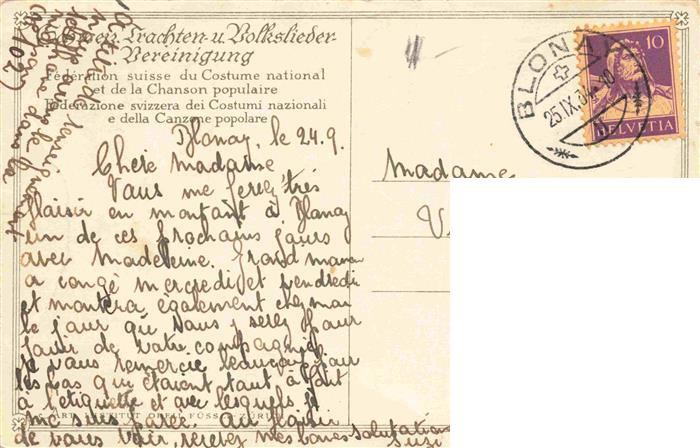 Schweiz. Trachten- u. Volkslieder-
Vereinigung
Fédération suisse du Costume national
et de la Chanson populaire
Federazione svizzera dei Costumi nazionali
e della Canzone popolare
HELVETIA
10
BLONAY
25.IX.
Blonay, le 24.9.
Chère Madame
Vous me ferez très
plaisir en montant à Blonay
un de ces prochains jours
avec Madeleine. Grand maman
a congé mercredi et vendredi
et montera également chez moi
le jour où vous y serez pour
jouir de votre compagnie.
Je vous remercie beaucoup pour
les bas qui étaient tout à fait
à l'étiquette et avec lesquels je
me suis parée. Au plaisir
de vous voir, recevez mes bonnes salutations
Suzi
ART. INSTITUT ORELL FÜSSLI ZÜRICH
Madame
V